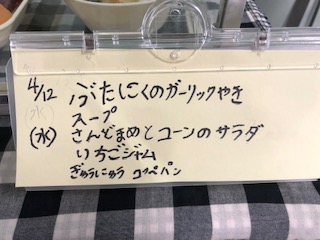 4/12 ぶたにくのガーリックやき
(水) スープ
(水) さんどまめとコーンのサラダ
いちごジャム
ぎゅうにゅう コッペパン